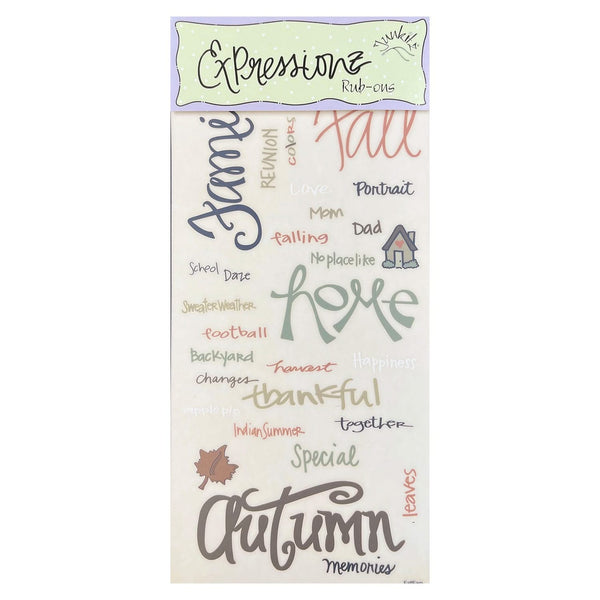 Expressionz
Junkitz
Rub-ons
Fall
REUNION
colors
Love
Portrait
Mom
Dad
falling
No place like
School Daze
home
Sweater Weather
football
Backyard
harvest
Happiness
Changes
thankful
apple pie
together
Indian Summer
Special
leaves
Autumn
Memories